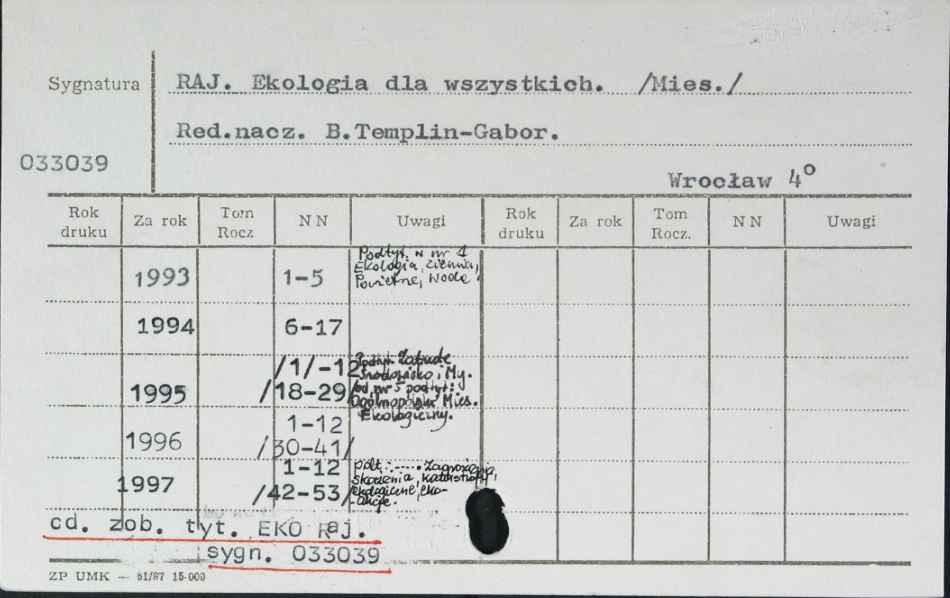 Sygnatura
RAJ. Ekologia dla wszystkich. /Mies./
Red.nacz. B.Templin-Gabor.
033039
Wrocław 4°
Rok druku Za rok Tom Rocz NN Uwagi Rok druku Za rok Tom Rocz. NN Uwagi
1993 1-5 Podtyt. w nr 1
Ekologia, ziemia,
Powietrze, Woda
1994 6-17
/1/-12
1995 /18-29/
Środowisko i My.
od nr 5 podtyt:
Ogólnopolski Mies.
Ekologiczny.
1996 1-12
/30-41/
1997 1-12
/42-53/
Zagrożenia,
skażenia, katastrofy
ekologiczne, eko-
-akcje.
cd. zob. tyt. EKO Raj.
sygn. 033039
ZP UMK — 61/87 15-000